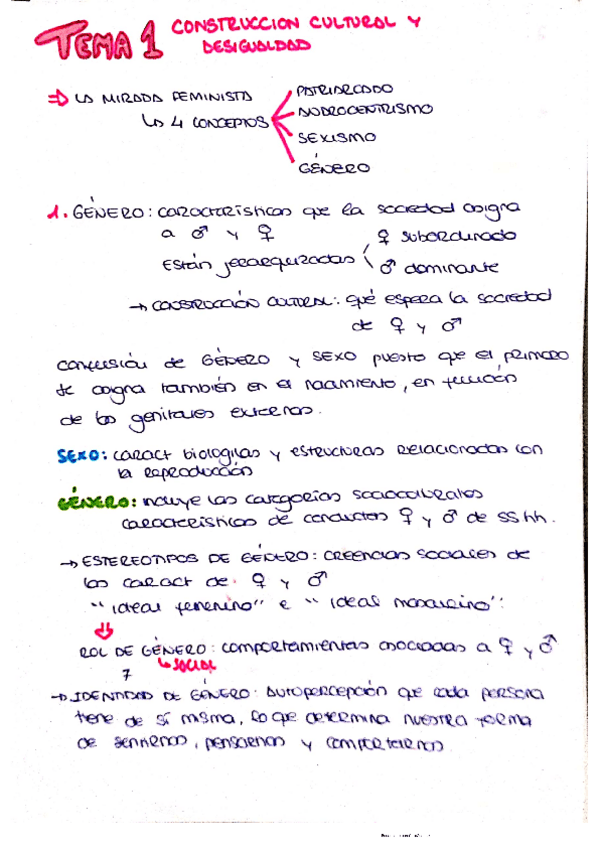 TEMA 1 CONSTRUCCION CULTURAL Y
DESIGUALDAD
⇒ LA MIRADA FEMINISTA
↳ 4 CONCEPTOS
PATRIARCADO
ANDROCENTRISMO
SEXISMO
GÉNERO
1. GÉNERO: características que la sociedad asigna
a ♂ y ♀
Están jerarquizadas
♀ subordinado
♂ dominante
→ CONSTRUCCIÓN CULTURAL: qué espera la sociedad
de ♀ y ♂
confusión de GÉNERO y SEXO puesto que el primero
se asigna también en el nacimiento, en función
de los genitales externos.
SEXO: caract biologicas y estructuras relacionadas con
la reproducción
GÉNERO: incluye las categorías socioculturales
características de conductas ♀ y ♂ de SS hh.
→ ESTEREOTIPOS DE GÉNERO: creencias sociales de
las caract de ♀ y ♂
"ideal femenino" e "ideal masculino":
⇓
ROL DE GÉNERO: comportamientos asociados a ♀ y ♂
↳ SOCIAL
→ IDENTIDAD DE GÉNERO: Autopercepción que cada persona
tiene de sí misma, lo que determina nuestra forma
de sentirnos, pensarnos y comportarnos